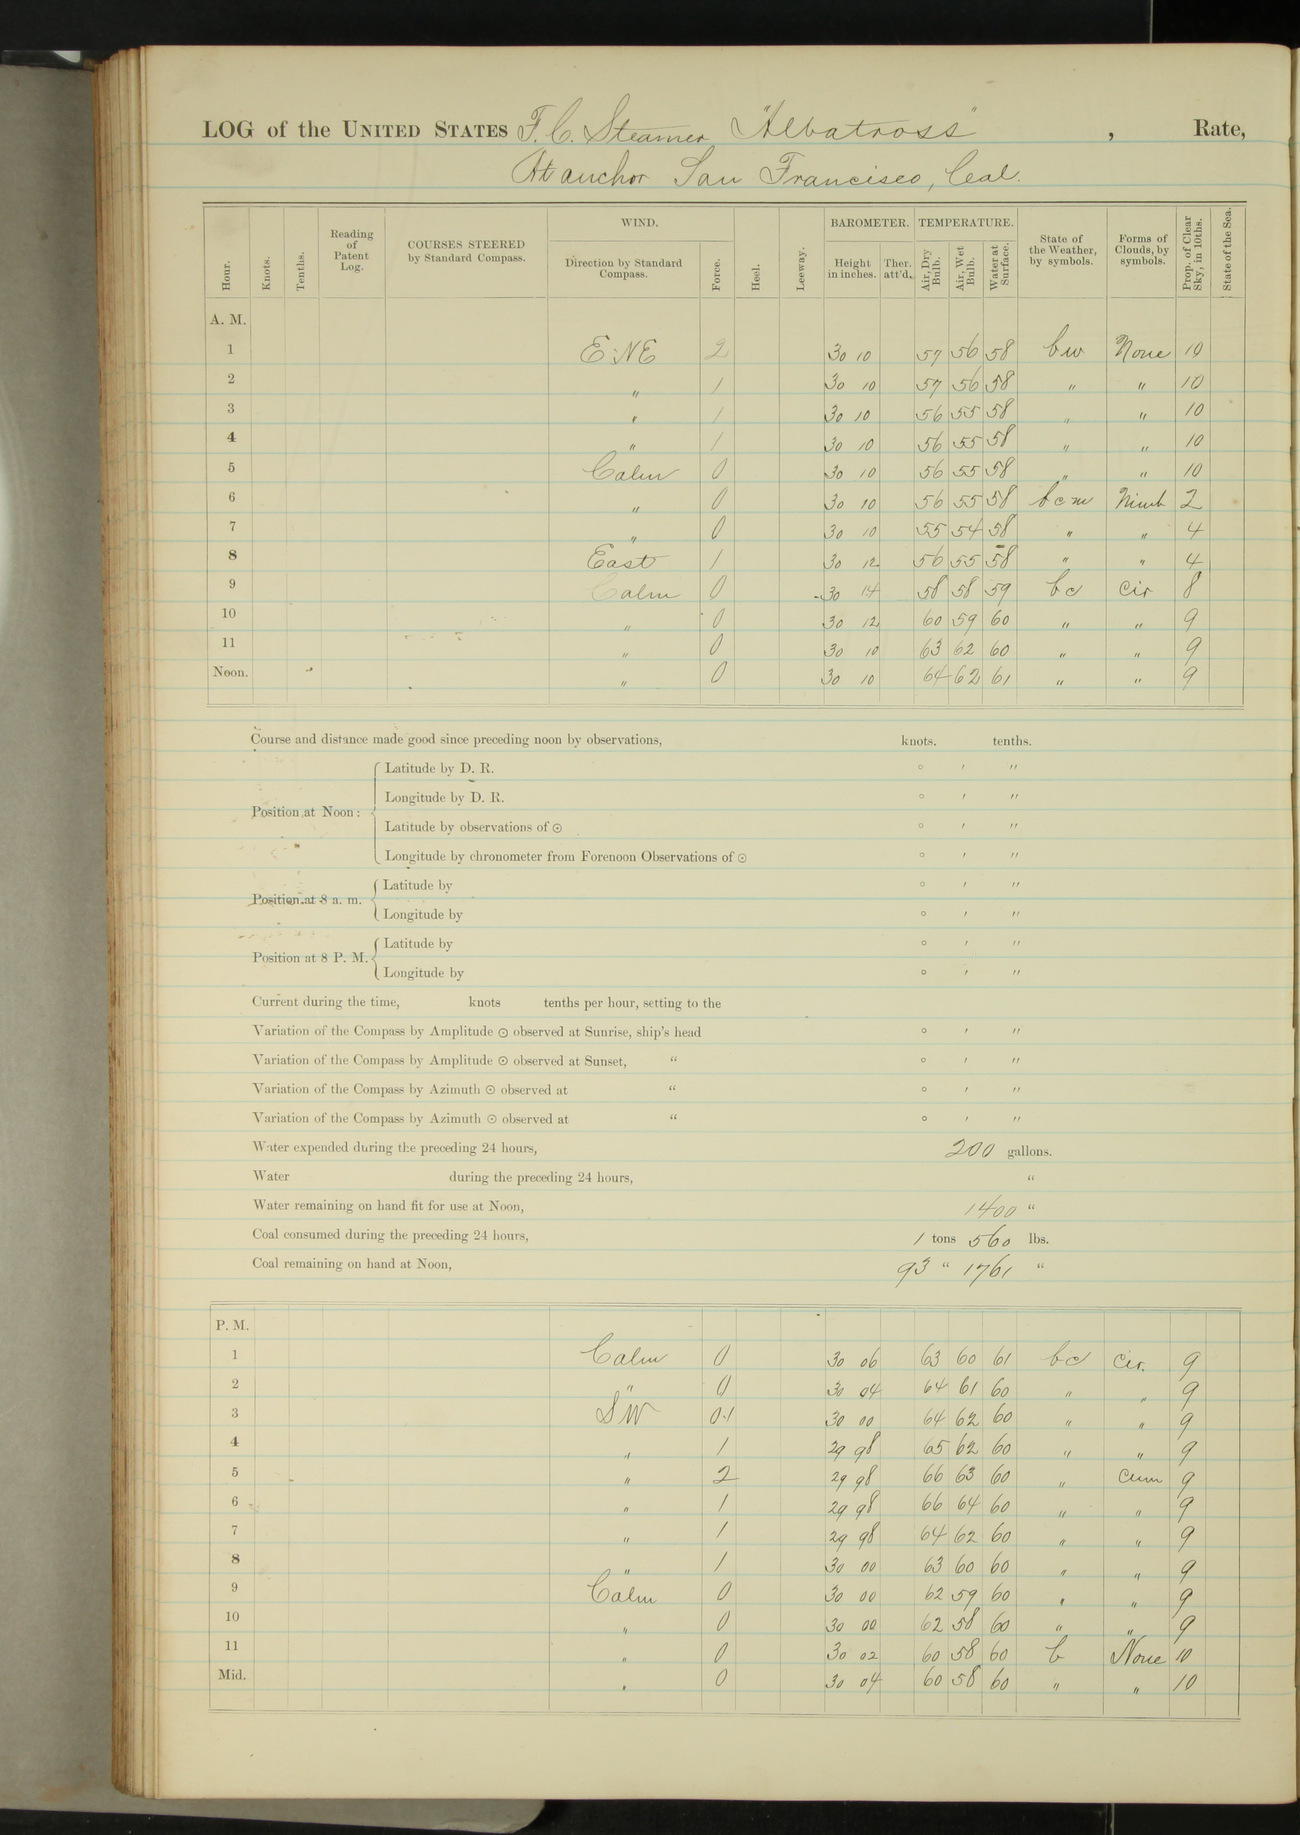 LOG of the UNITED STATES F. C. Steamer "Albatross" , Rate,
At anchor San Francisco, Cal.
Hour. Knots. Tenths. Reading of Patent Log. COURSES STEERED by Standard Compass. WIND. Direction by Standard Compass. Force. Heel. Leeway. BAROMETER. Height in inches. Ther. att'd. TEMPERATURE. Air, Dry Bulb. Air, Wet Bulb. Water at Surface. State of the Weather, by symbols. Forms of Clouds, by symbols. Prop. of Clear Sky, in 10ths. State of the Sea.
A. M.
1 E NE 2 30 10 57 56 58 bw None 10
2 " 1 30 10 57 56 58 " " 10
3 " 1 30 10 56 55 58 " " 10
4 " 1 30 10 56 55 58 " " 10
5 Calm 0 30 10 56 55 58 " " 10
6 " 0 30 10 56 55 58 bcm Nimb 2
7 " 0 30 10 55 54 58 " " 4
8 East 1 30 12 56 55 58 " " 4
9 Calm 0 30 14 58 58 59 bc Cir 8
10 " 0 30 12 60 59 60 " " 9
11 " 0 30 10 63 62 60 " " 9
Noon. " 0 30 10 64 62 61 " " 9
Course and distance made good since preceding noon by observations, knots. tenths.
Position at Noon:
Latitude by D. R. ° ′ ″
Longitude by D. R. ° ′ ″
Latitude by observations of ☉ ° ′ ″
Longitude by chronometer from Forenoon Observations of ☉ ° ′ ″
Position at 8 a. m.
Latitude by ° ′ ″
Longitude by ° ′ ″
Position at 8 P. M.
Latitude by ° ′ ″
Longitude by ° ′ ″
Current during the time, knots tenths per hour, setting to the
Variation of the Compass by Amplitude ☉ observed at Sunrise, ship's head ° ′ ″
Variation of the Compass by Amplitude ☉ observed at Sunset, " ° ′ ″
Variation of the Compass by Azimuth ☉ observed at " ° ′ ″
Variation of the Compass by Azimuth ☉ observed at " ° ′ ″
Water expended during the preceding 24 hours, 200 gallons.
Water during the preceding 24 hours, "
Water remaining on hand fit for use at Noon, 1400 "
Coal consumed during the preceding 24 hours, 1 tons 560 lbs.
Coal remaining on hand at Noon, 93 " 1761 "
P. M.
1 Calm 0 30 06 63 60 61 bc Cir. 9
2 " 0 30 04 64 61 60 " " 9
3 SW 0.1 30 00 64 62 60 " " 9
4 " 1 29 98 65 62 60 " " 9
5 " 2 29 98 66 63 60 " Cum 9
6 " 1 29 98 66 64 60 " " 9
7 " 1 29 98 64 62 60 " " 9
8 " 1 30 00 63 60 60 " " 9
9 Calm 0 30 00 62 59 60 " " 9
10 " 0 30 00 62 58 60 " " 9
11 " 0 30 02 60 58 60 b None 10
Mid. " 0 30 04 60 58 60 " " 10